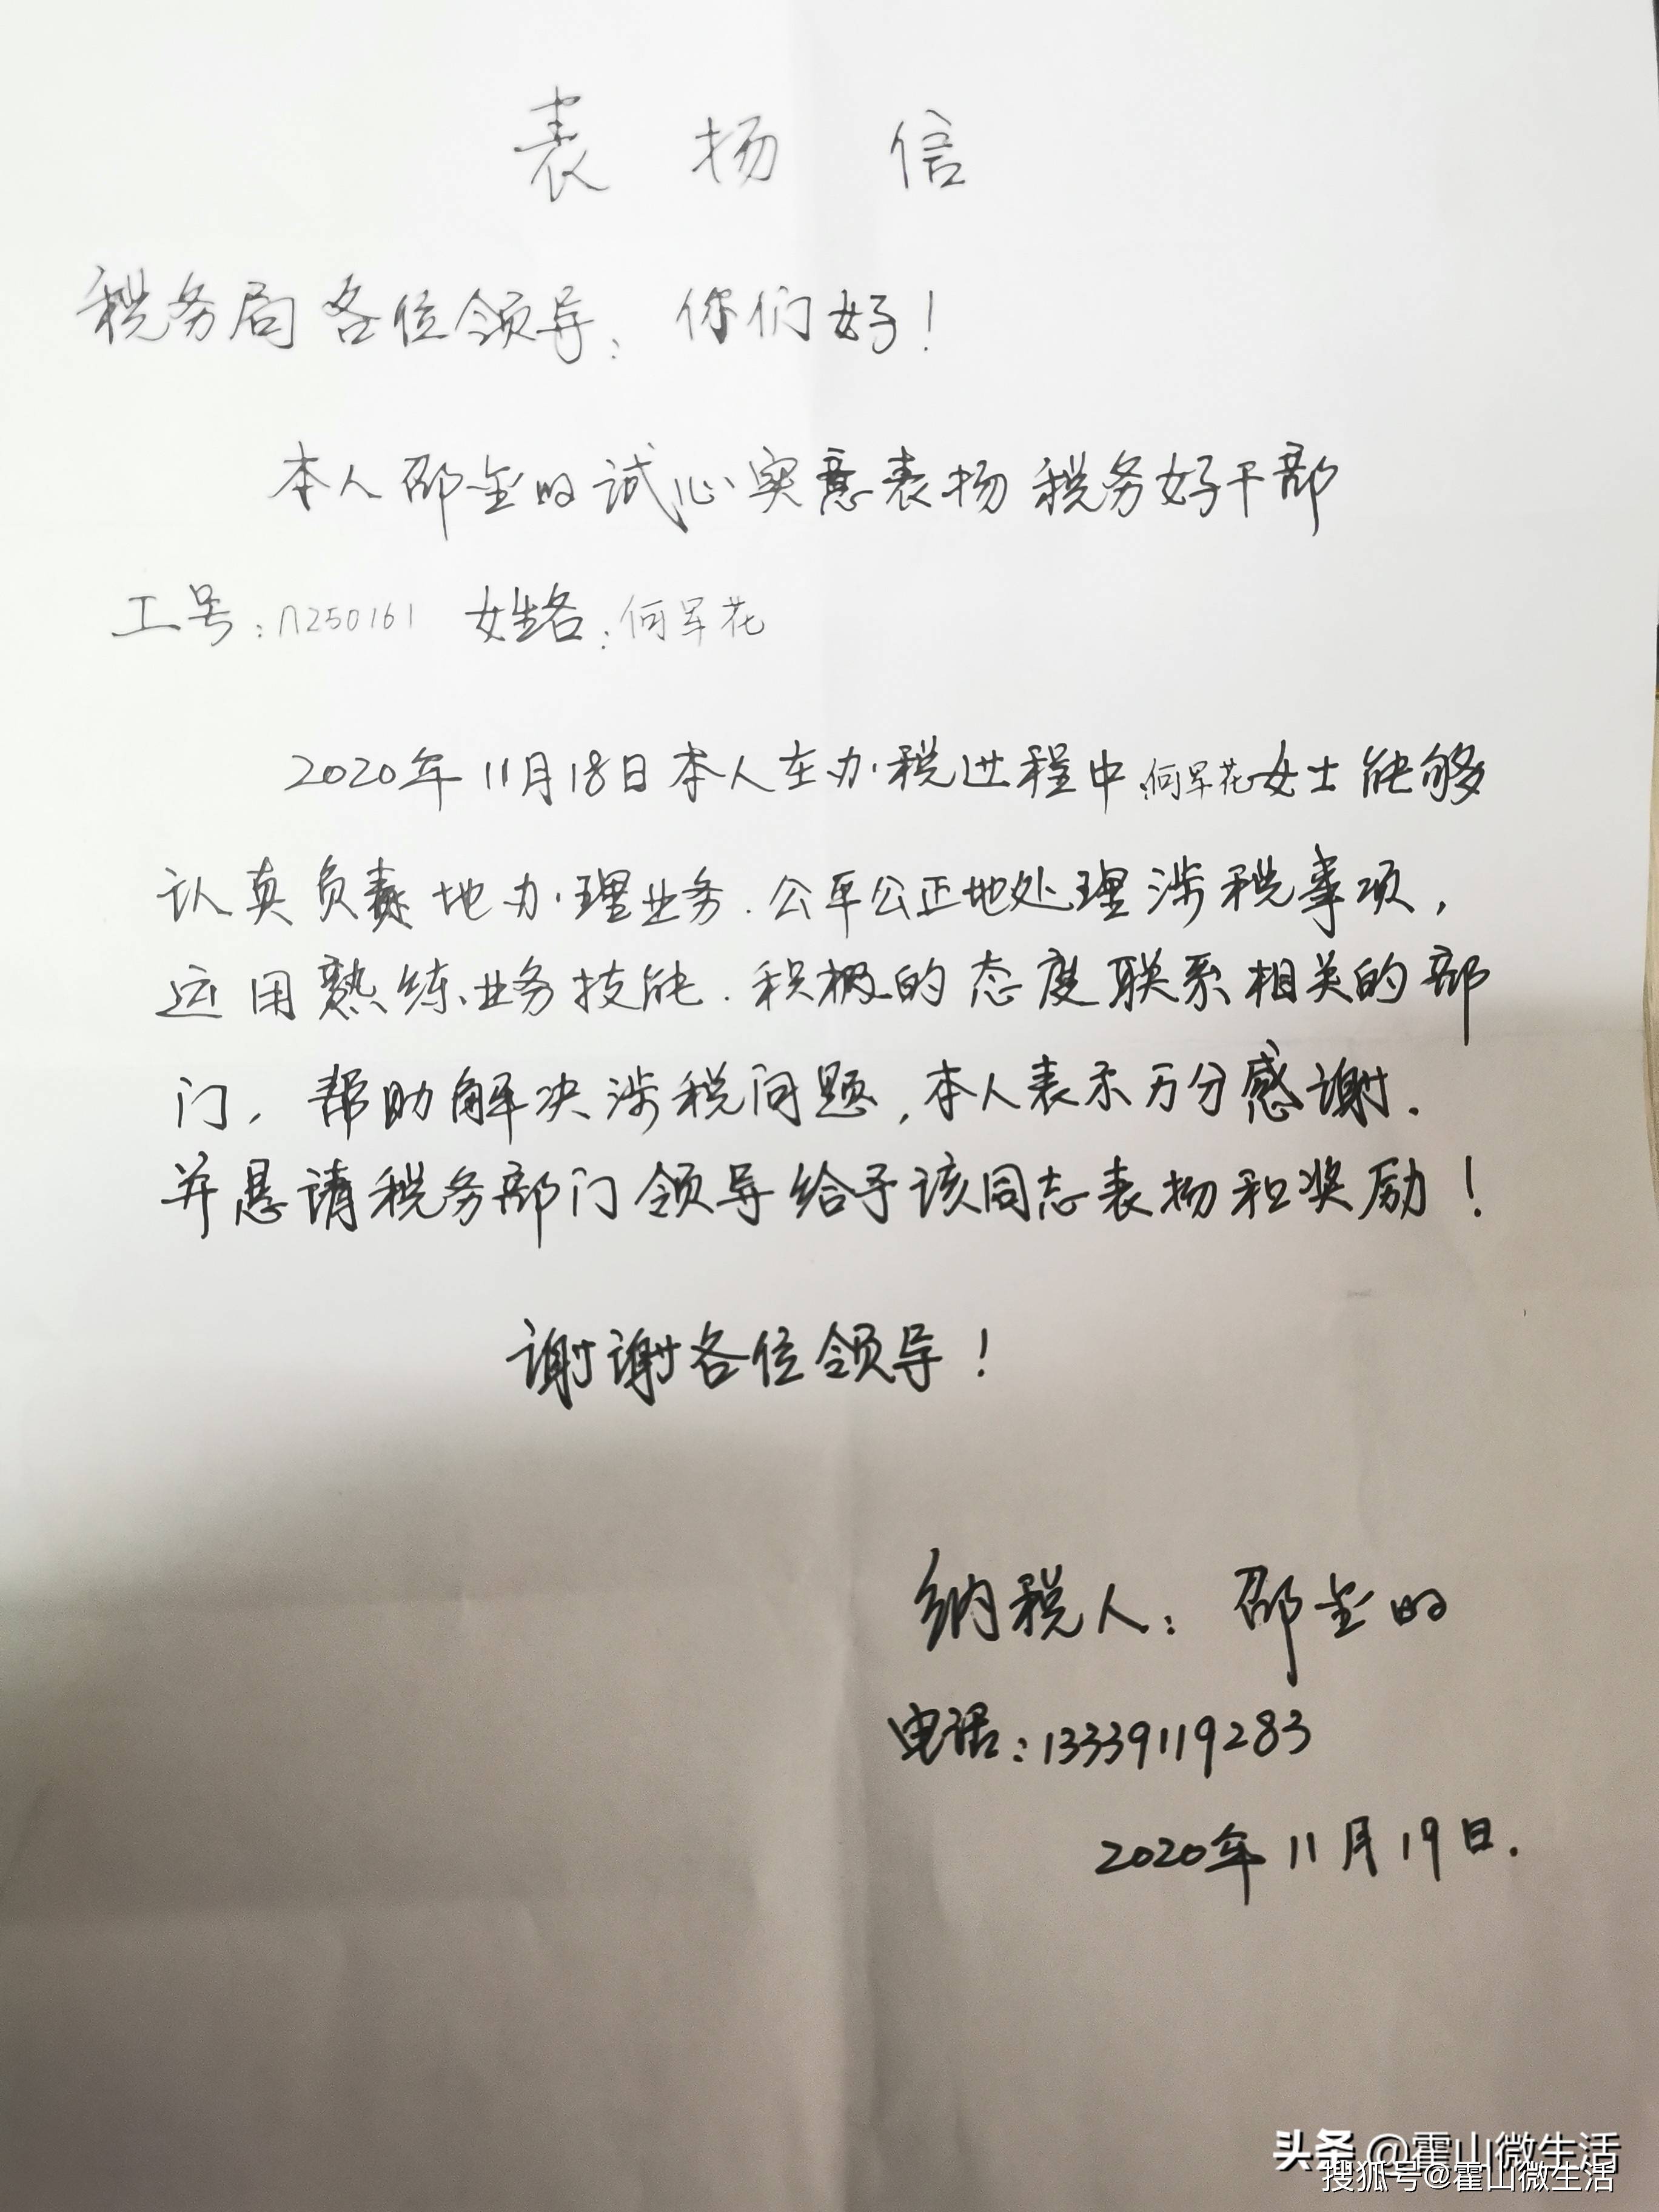 表扬信
税务局各位领导：你们好！
本人邵金明诚心实意表扬税务好干部
工号：n250161 姓名：何军花
2020年11月18日本人在办税过程中，何军花女士能够
认真负责地办理业务．公平公正地处理涉税事项，
运用熟练业务技能．积极的态度联系相关的部
门，帮助解决涉税问题，本人表示万分感谢．
并恳请税务部门领导给予该同志表扬和奖励！
谢谢各位领导！
纳税人：邵金明
电话：13339119283
2020年11月19日．
头条 @霍山微生活
搜狐号@霍山微生活